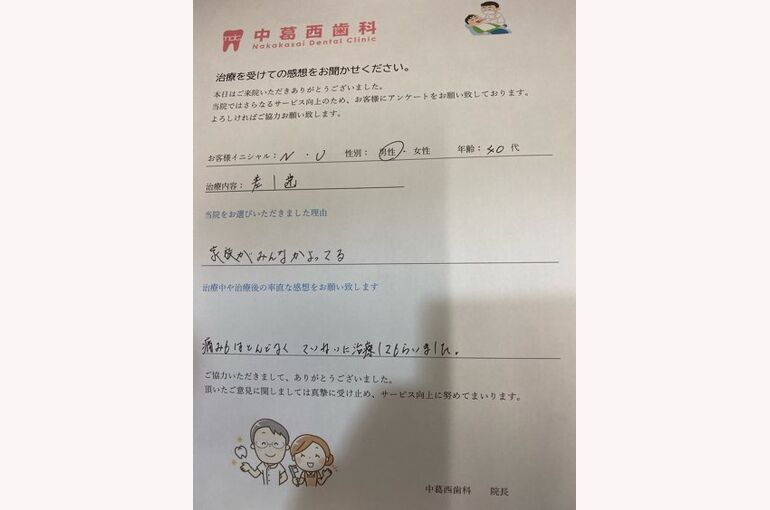 ndc 中葛西歯科
Nakakasai Dental Clinic
治療を受けての感想をお聞かせください。
本日はご来院いただきありがとうございました。
当院ではさらなるサービス向上のため、お客様にアンケートをお願い致しております。
よろしければご協力お願い致します。
お客様イニシャル：N・U 性別： 男性・女性 年齢：40 代
治療内容： 差し歯
当院をお選びいただきました理由
家族がみんなかよってる
治療中や治療後の率直な感想をお願い致します
痛みもほとんどなく ていねいに治療してもらいました。
ご協力いただきまして、ありがとうございました。
頂いたご意見に関しましては真摯に受け止め、サービス向上に努めてまいります。
中葛西歯科 院長